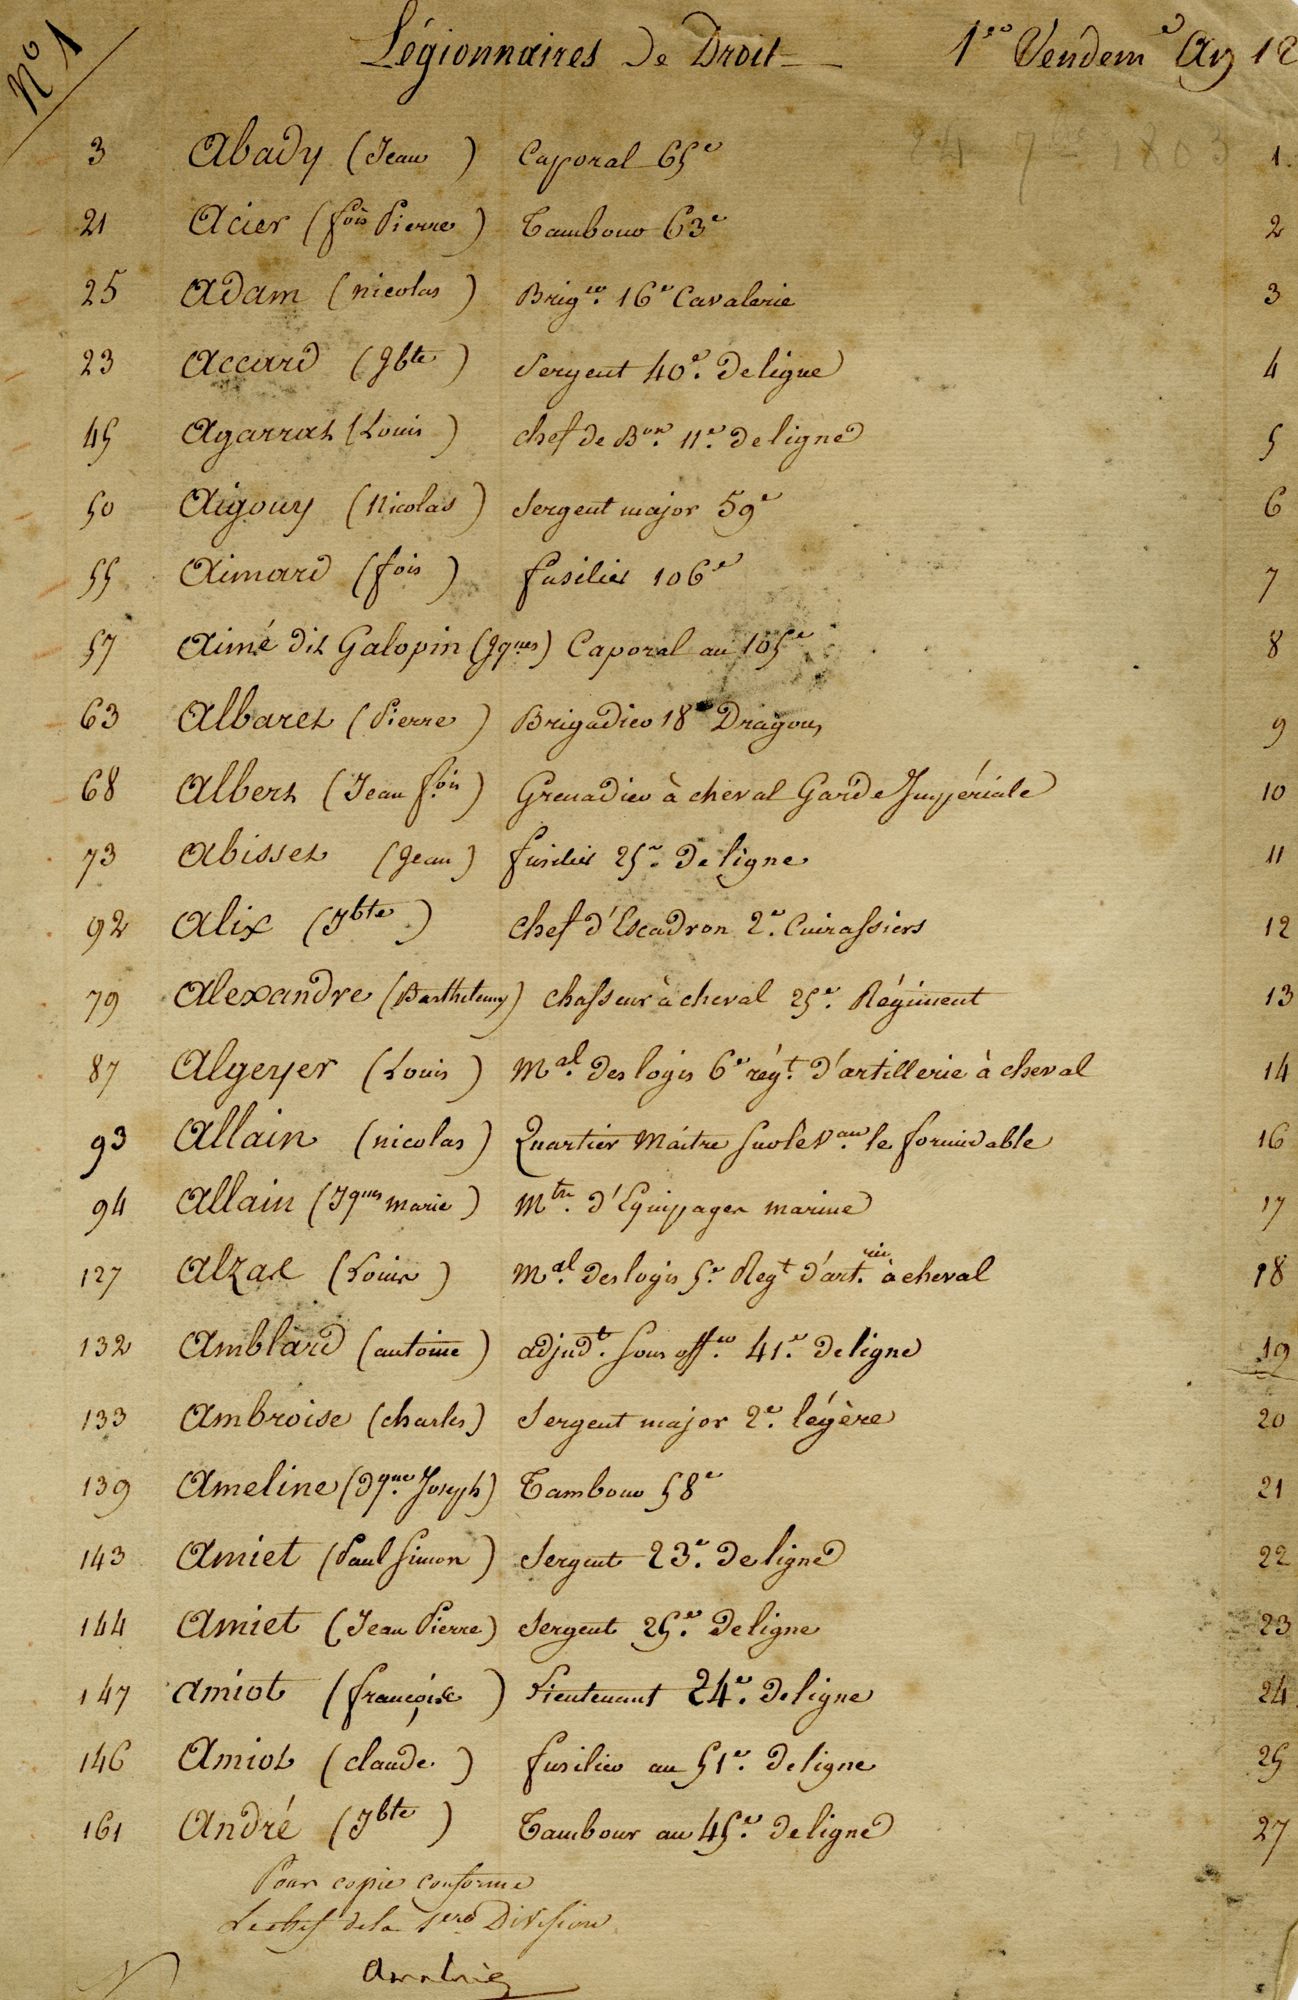 N° 1 Légionnaires De Droit 1er Vendemre An 12
24 7bre 1803
3 Abady (Jean) Caporal 65e 1.
21 Acier (fois Pierre) Tambour 63e 2
25 Adam (nicolas) Briger. 16e Cavalerie 3
23 Accard (Jbte) Sergent 40e. De ligne 4
45 Agarrat (Louis) chef de Bon. 11e. De ligne 5
50 Aigouy (Nicolas) Sergent major 59e 6
55 Aimard (fois) fusilier 106e 7
57 Aimé dit Galopin (Jques) Caporal au 105e 8
63 Albaret (Pierre) Brigadier 18e Dragons 9
68 Albert (Jean fois) Grenadier à cheval Garde Impériale 10
73 Abisset (Jean) fusilier 25e. De ligne 11
92 Alix (Jbte) chef d'Escadron 2e. Cuirassiers 12
79 Alexandre (Barthelemy) chasseur à cheval 25e. Régiment 13
87 Algeyer (Louis) Mal. Des logis 6e régt. D'artillerie à cheval 14
93 Allain (nicolas) Quartier Maitre sur le Vau. le formidable 16
94 Allain (Jques marie) Mtre. d'Equipages marine 17
127 Alzas (Louis) Mal. Des logis 5e. Regt d'art.rie à cheval 18
132 Amblard (antoine) adjudt. Sous offer 41e. De ligne 19
133 Ambroise (charles) Sergent major 2e. légère 20
139 Ameline (Dque. Joseph) Tambour 58e 21
143 Amiet (Paul Simon) Sergent 23e. De ligne 22
144 Amiet (Jean Pierre) Sergent 25e. De ligne 23
147 Amiot (françois) Lieutenant 24e. De ligne 24
146 Amiot (claude) fusilier au 51e. De ligne 25
161 André (Jbte) Tambour au 45e. De ligne 27
Pour copie conforme
Le chef de la 1ere Division